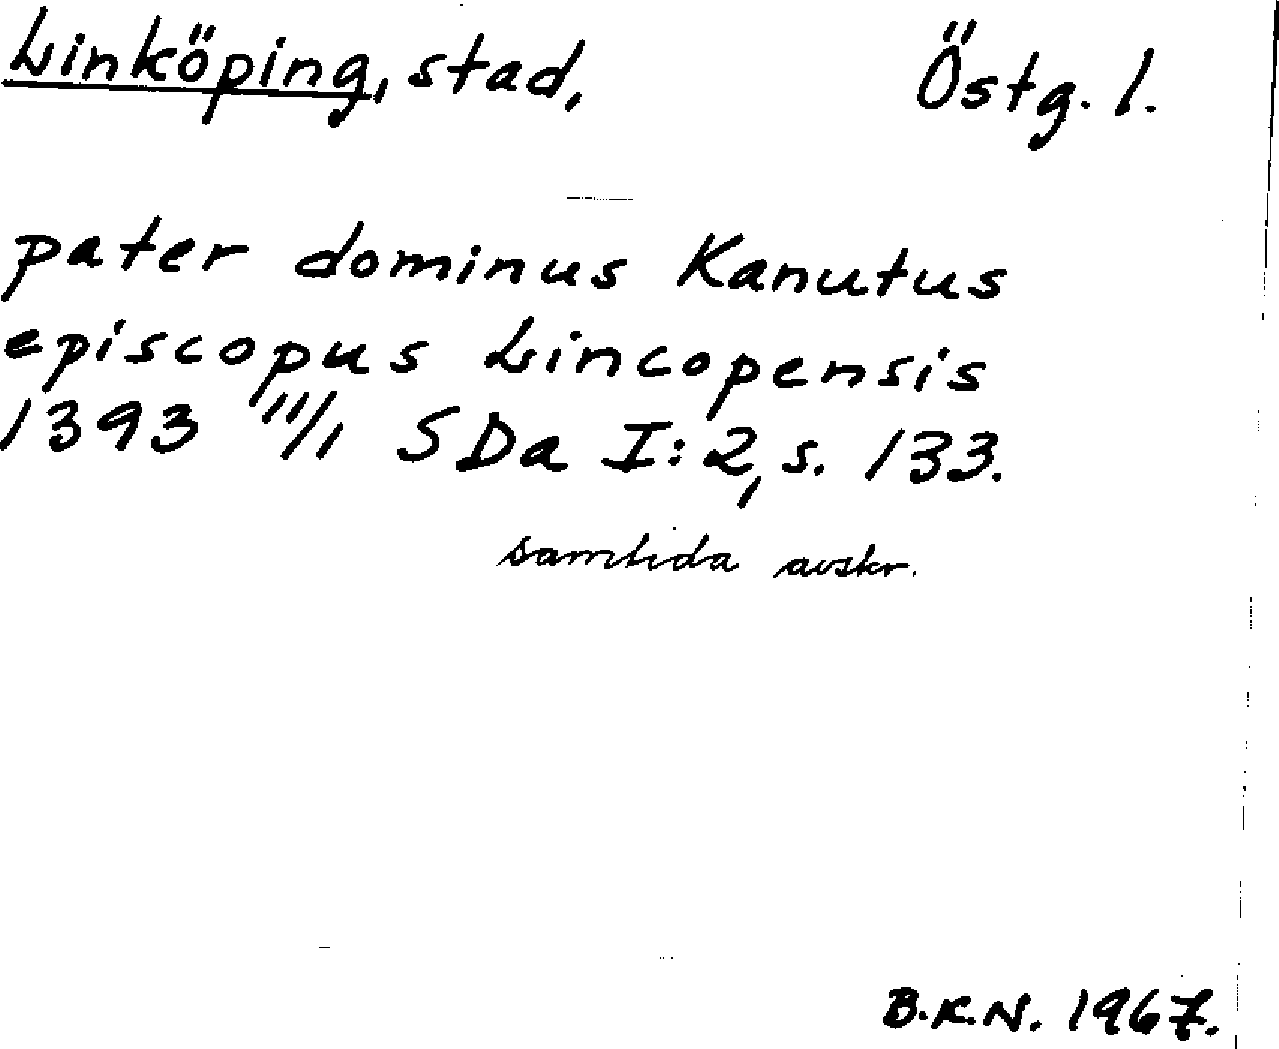 Linköping, stad, Östg. l.
pater dominus Kanutus
episcopus Lincopensis
1393 11/1 SDa I:2, s. 133.
samtida avskr.
B.K.N. 1967.